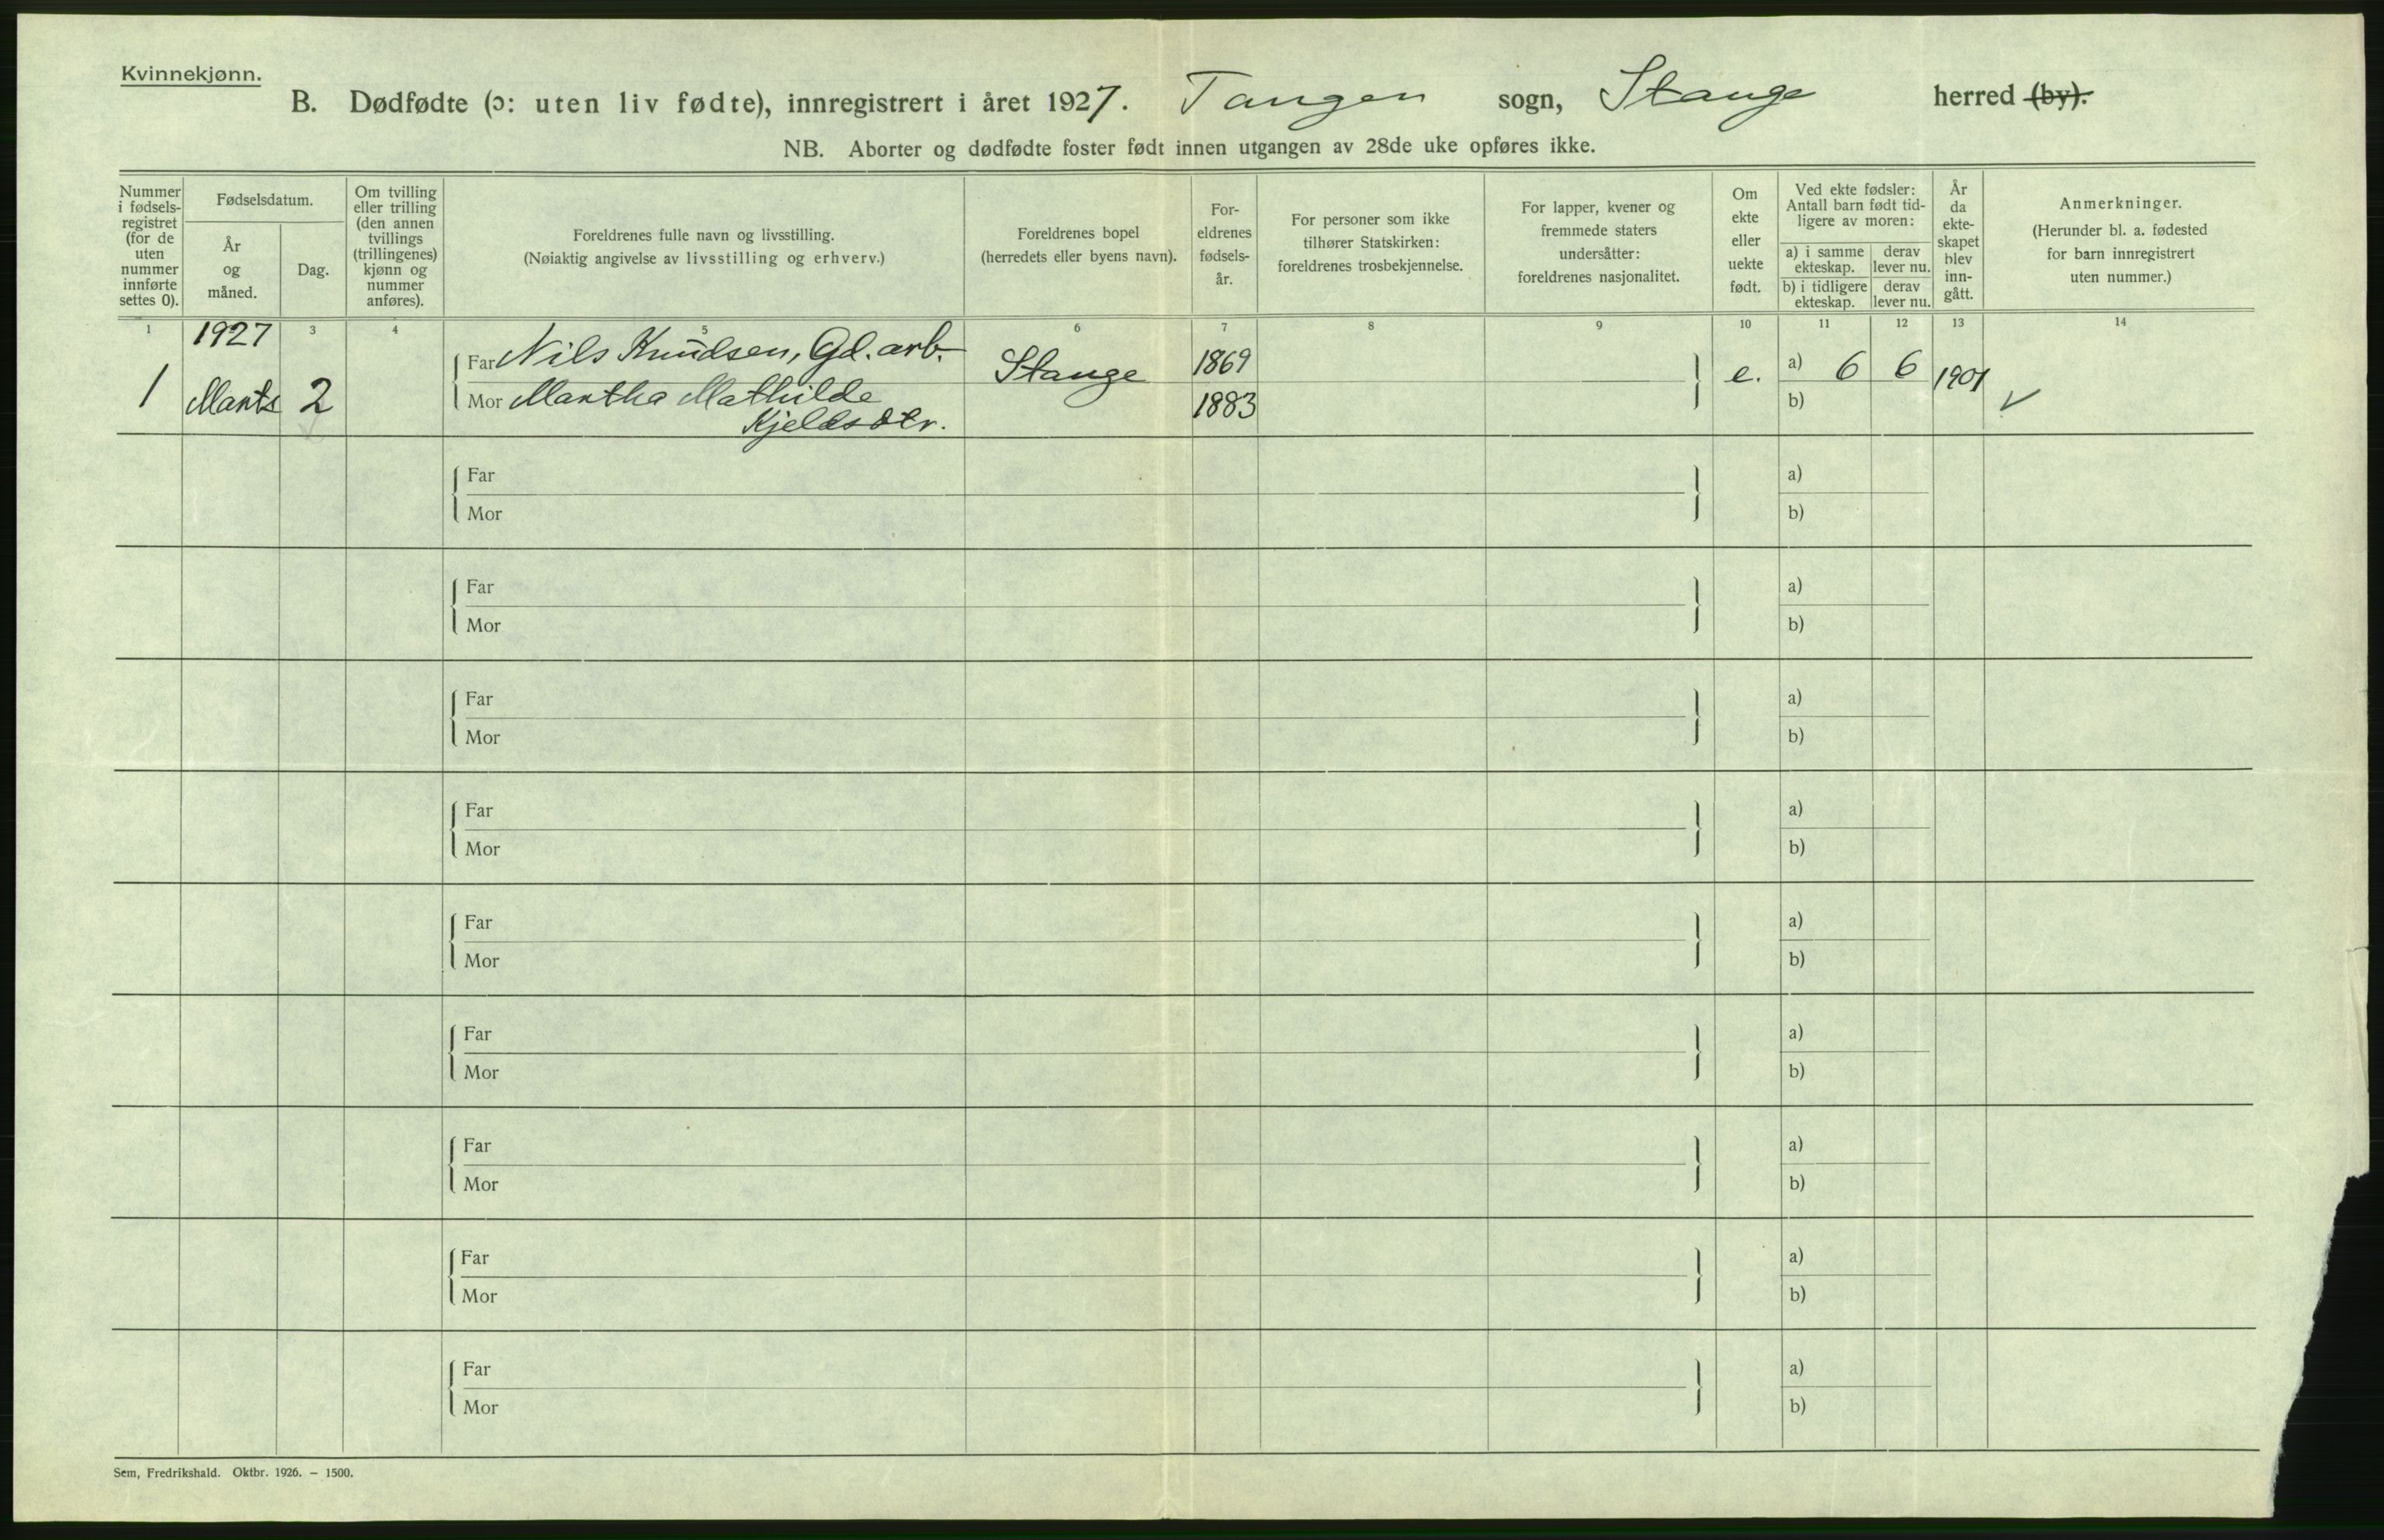 Kvinnekjønn.
B. Dødfødte (ɔ: uten liv fødte), innregistrert i året 1927. Tangen sogn, Stange herred (by).
NB. Aborter og dødfødte foster født innen utgangen av 28de uke opføres ikke.
Nummer
i fødsels-
registret
(for de
uten
nummer
innførte
settes 0).
Fødselsdatum.
År
og
måned.
Dag.
Om tvilling
eller trilling
(den annen
tvillings
(trillingenes)
kjønn og
nummer
anføres).
Foreldrenes fulle navn og livsstilling.
(Nøiaktig angivelse av livsstilling og erhverv.)
Foreldrenes bopel
(herredets eller byens navn).
For-
eldrenes
fødsels-
år.
For personer som ikke
tilhører Statskirken:
foreldrenes trosbekjennelse.
For lapper, kvener og
fremmede staters
undersåtter:
foreldrenes nasjonalitet.
Om
ekte
eller
uekte
født.
Ved ekte fødsler:
Antall barn født tid-
ligere av moren:
a) i samme
ekteskap.
derav
lever nu.
b) i tidligere
ekteskap.
derav
lever nu.
År
da
ekte-
skapet
blev
inn-
gått.
Anmerkninger.
(Herunder bl. a. fødested
for barn innregistrert
uten nummer.)
1 3 4 5 6 7 8 9 10 11 12 13 14
1927
Far Nils Knudsen, Gd. arb. Stange 1869 e. a) 6 6 1901
1 Marts 2 Mor Martha Mathilde 1883 b)
Kjeldsdtr.
Far a)
Mor b)
Far a)
Mor b)
Far a)
Mor b)
Far a)
Mor b)
Far a)
Mor b)
Far a)
Mor b)
Far a)
Mor b)
Far a)
Mor b)
Far a)
Mor b)
Sem, Fredrikshald. Oktbr. 1926. – 1500.